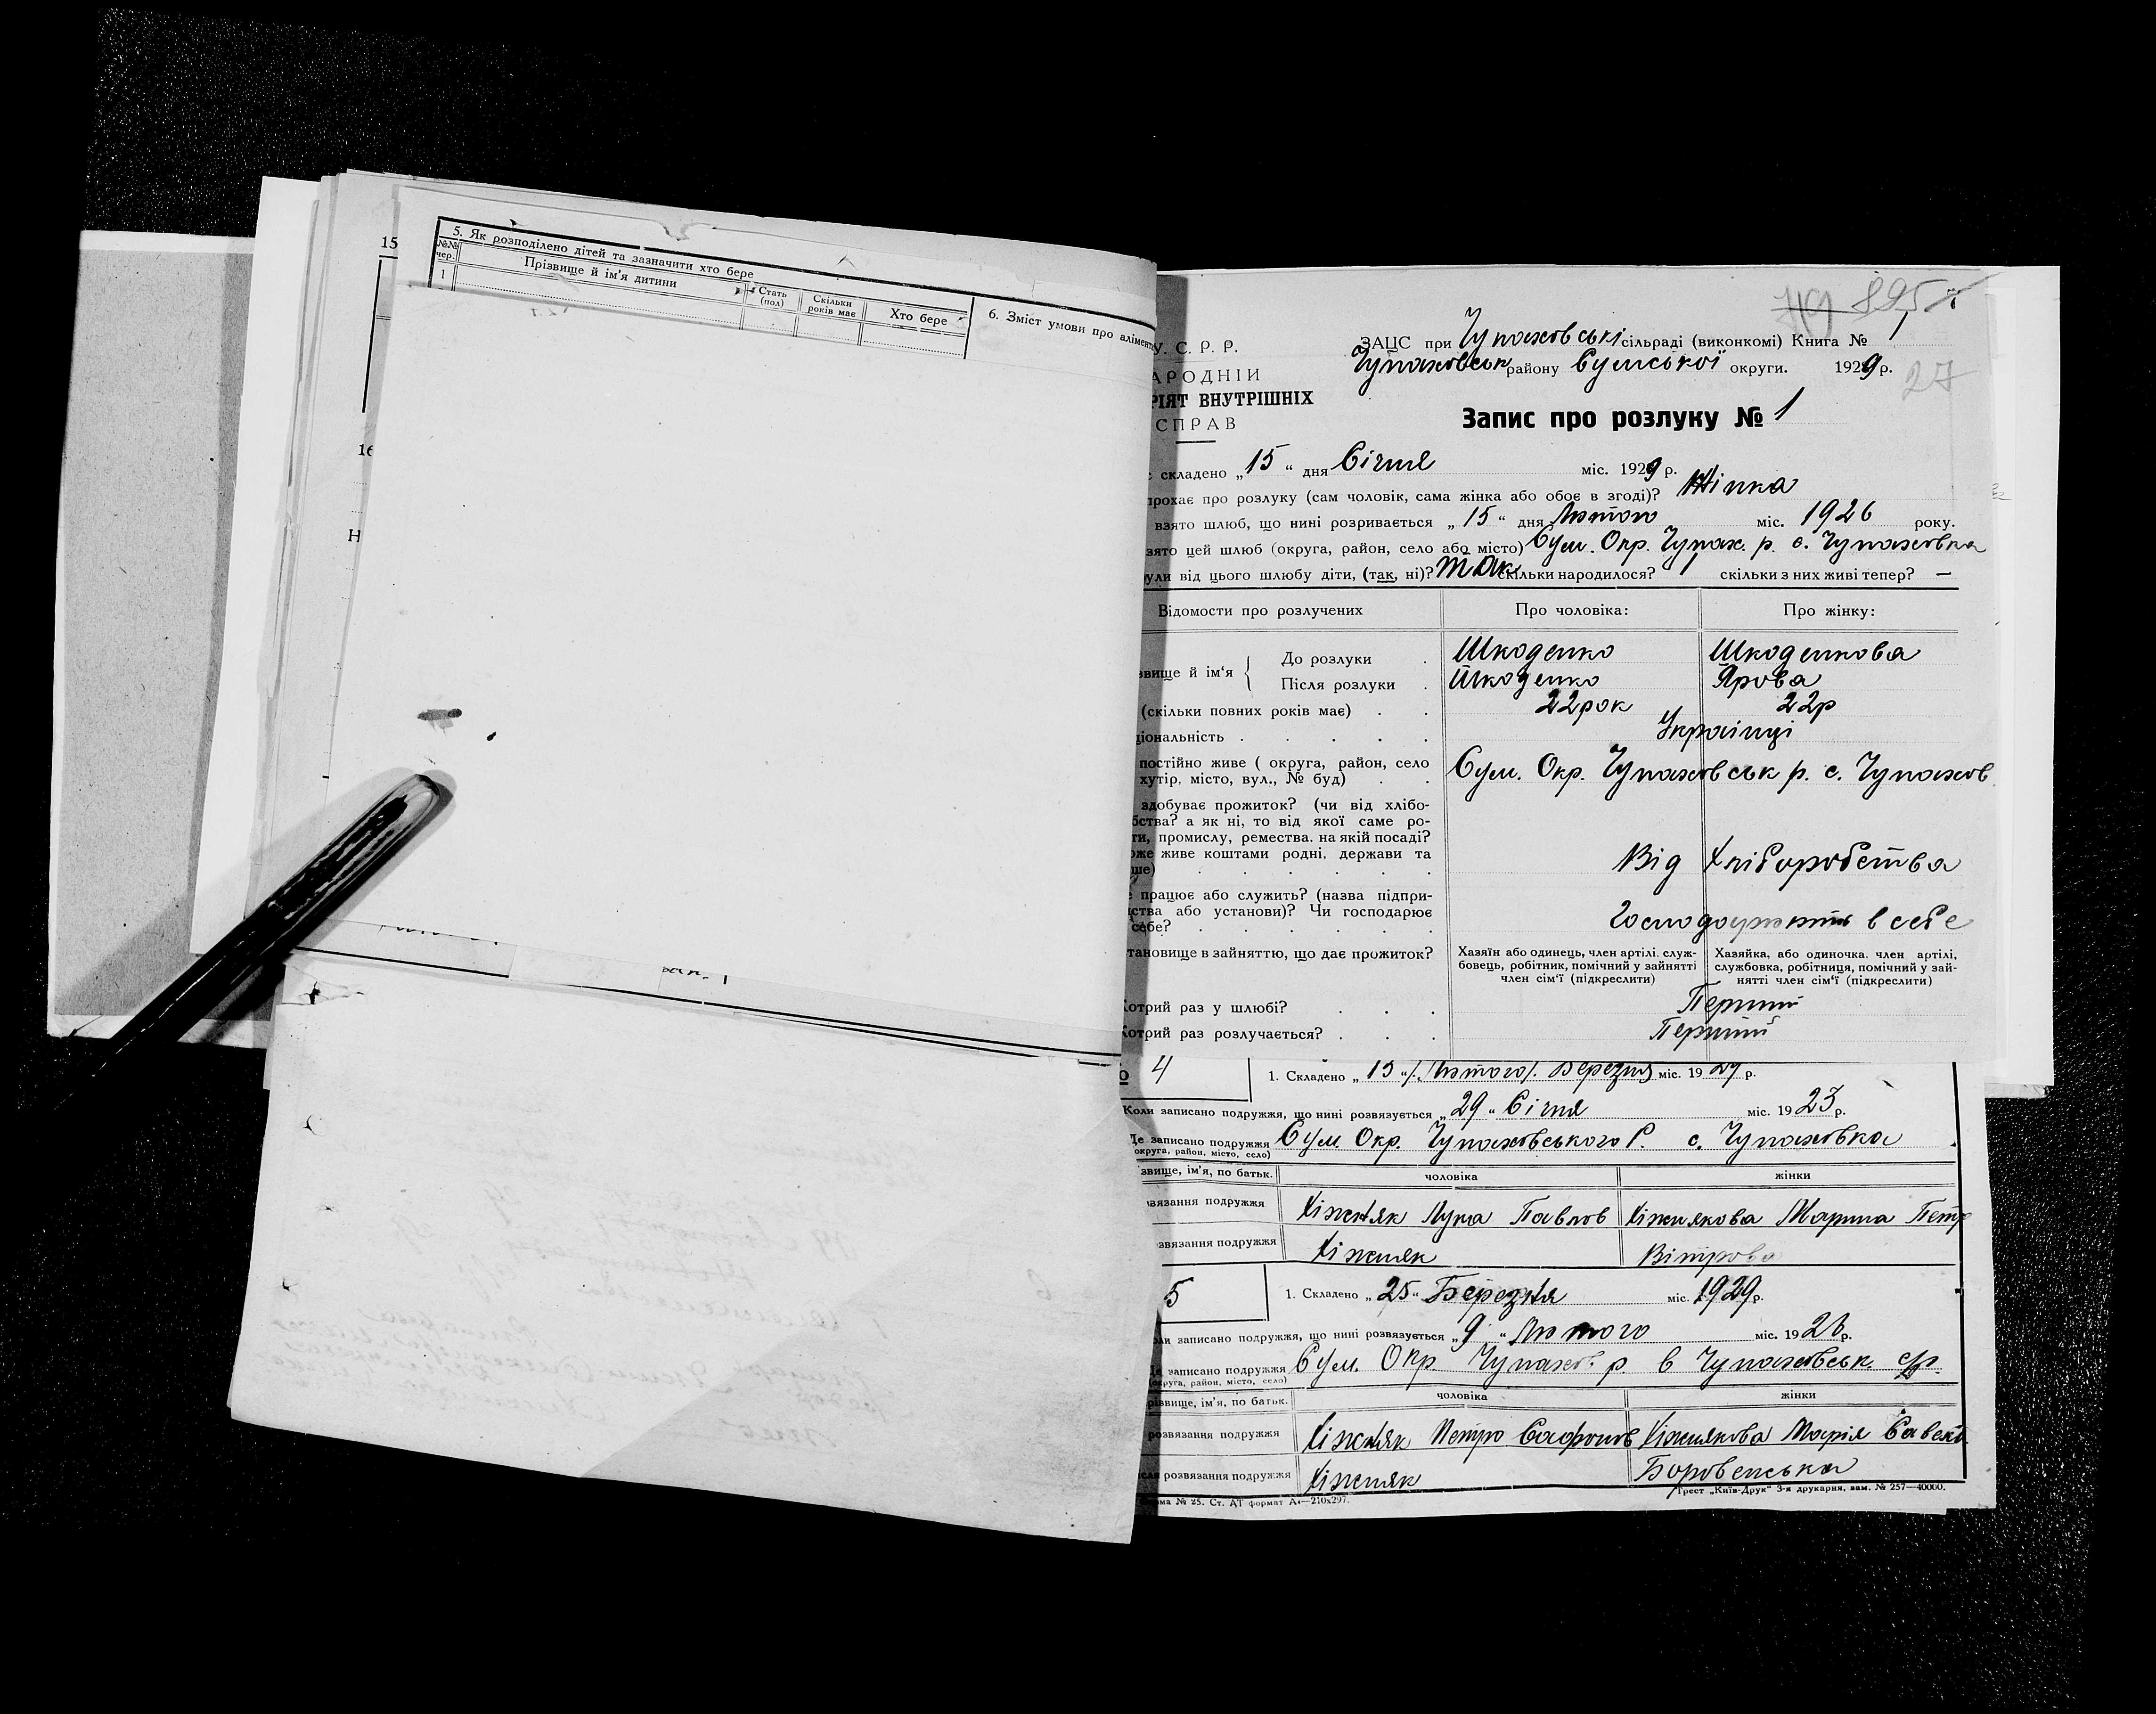 15
16
Н
5. Як розподілено дітей та зазначити хто бере
№№ чер.
Прізвище й ім'я дитини
Стать (пол)
Скільки років має
Хто бере
6. Зміст умови про аліменти
1
895
27
У. С. Р. Р.
АРОДНІЙ
РІЯТ ВНУТРІШНІХ
СПРАВ
ЗАЦС при Чупаховські сільраді (виконкомі) Книга № 1
Чупаховськ району Сумської округи. 1929 р.
Запис про розлуку № 1
складено „15“ дня Січня міс. 1929 р.
прохає про розлуку (сам чоловік, сама жінка або обоє в згоді)? Жінка
взято шлюб, що нині розривається „15“ дня Лютого міс. 1926 року.
зято цей шлюб (округа, район, село або місто) Сум. Окр. Чупах. р. с. Чупаховка
ули від цього шлюбу діти, (так, ні)? так скільки народилося? 1 скільки з них живі тепер? —
Відомости про розлучених
Про чоловіка:
Про жінку:
звище й ім'я
До розлуки . Шкоденко Шкоденкова
Після розлуки . Шкоденко Ярова
(скільки повних років має) . . 22 рок 22 р
ціональність . . . . . Українці
постійно живе ( округа, район, село
хутір, місто, вул., № буд) . . Сум. Окр. Чупаховськ р. с. Чупахов
здобуває прожиток? (чи від хлібо-
бства? а як ні, то від якої саме ро-
ти, промислу, ремества. на якій посаді?
оже живе коштами родні, держави та
ше) . . . . . . Від Хліборобства
працює або служить? (назва підпри-
ства або установи)? Чи господарює
себе? . . . . . . в себе
тановище в зайняттю, що дає прожиток?
Хазяїн або одинець, член артілі. служ-
бовець, робітник, помічний у зайнятті
член сім'ї (підкреслити)
Хазяйка, або одиночка. член артілі,
службовка, робітниця, помічний у зай-
нятті член сім'ї (підкреслити)
Котрий раз у шлюбі? . . . Перший
Котрий раз розлучається? . . . Перший
4
1. Складено „15“ /Лютого/. Березня міс. 1929 р.
Коли записано подружжя, що нині розвязується „29“ Січня міс. 1923 р.
Де записано подружжя Сум. Окр. Чупаховського Р. с. Чупаховка
округа, район, місто, село)
звище, ім'я, по батьк.
чоловіка
жінки
звязання подружжя Хіжняк Лука Павлов Хіжнякова Марина Петр
звязання подружжя Хіжняк Вітрова
5
1. Складено „25“ Березня міс. 1929 р.
ли записано подружжя, що нині розвязується „9“ Лютого міс. 1926 р.
Де записано подружжя Сум. Окр. Чупахов. р. в Чупаховськ с/р.
округа, район, місто, село)
різвище, ім'я, по батьк.
чоловіка
жінки
розвязання подружжя Хіжняк Петро Сафонов Хіжнякова Марія
сля розвязання подружжя Хіжняк Боровенська
рма № 25. Ст. АТ формат А4—210x297.
Трест „Київ-Друк“ 3-я друкарня, зам. № 257—40000.